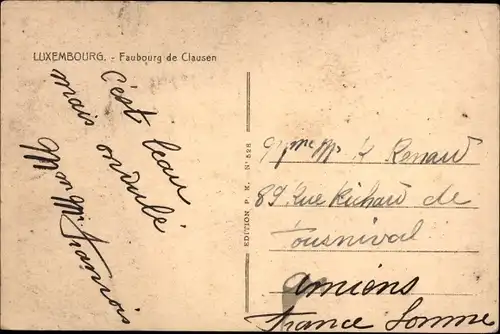 LUXEMBOURG. - Faubourg de Clausen
C'est beau
mais ondulé
Mon Mi
François
EDITION P. K. N° 528
Mme Mr R Renard
89 Rue Richard de
Fournival
Amiens
France Somme